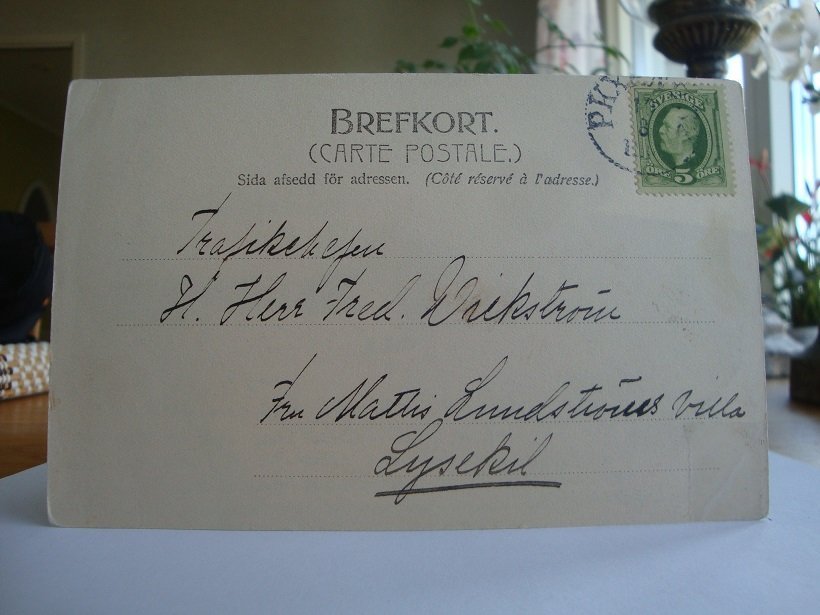 BREFKORT.
(CARTE POSTALE.)
Sida afsedd för adressen. (Côté réservé à l'adresse.)
SVERIGE
ÖRE 5 ÖRE
Trafikchefen
H. Herr Fred. Wickström
Fru Mattis Lundströms villa
Lysekil